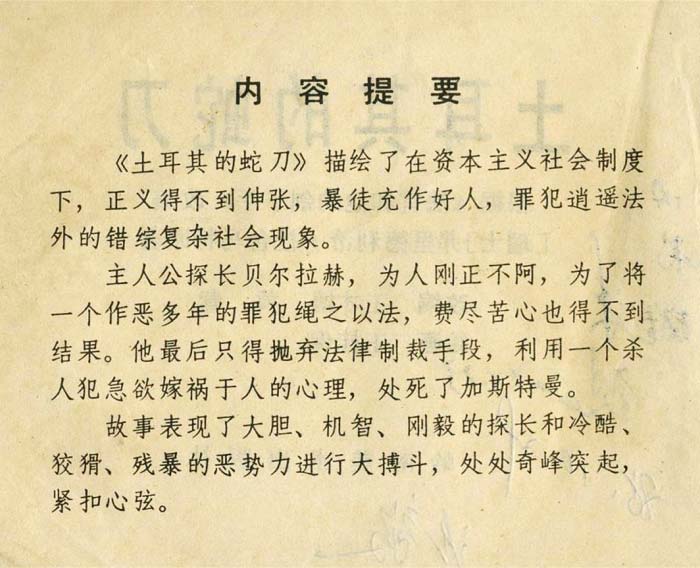 内容提要
《土耳其的蛇刀》描绘了在资本主义社会制度
下，正义得不到伸张，暴徒充作好人，罪犯逍遥法
外的错综复杂社会现象。
主人公探长贝尔拉赫，为人刚正不阿，为了将
一个作恶多年的罪犯绳之以法，费尽苦心也得不到
结果。他最后只得抛弃法律制裁手段，利用一个杀
人犯急欲嫁祸于人的心理，处死了加斯特曼。
故事表现了大胆、机智、刚毅的探长和冷酷、
狡猾、残暴的恶势力进行大搏斗，处处奇峰突起，
紧扣心弦。